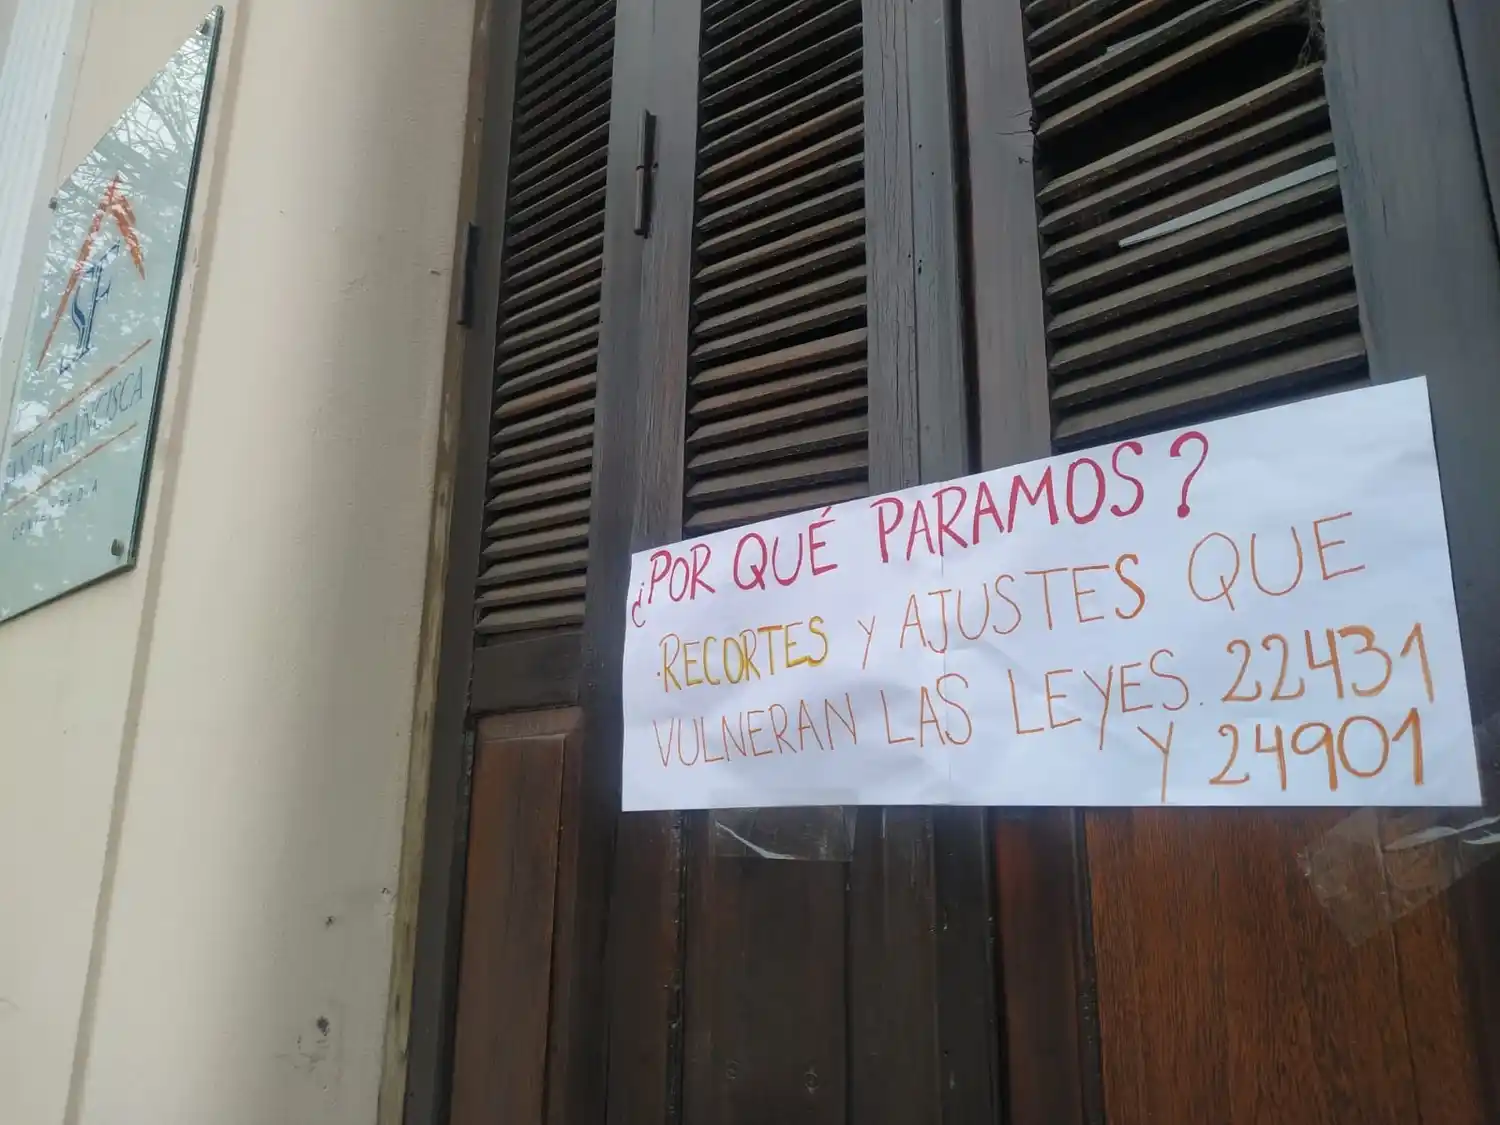 SF
SANTA FRANCISCA
¿POR QUÉ PARAMOS?
·RECORTES Y AJUSTES QUE
VULNERAN LAS LEYES. 22431
Y 24901